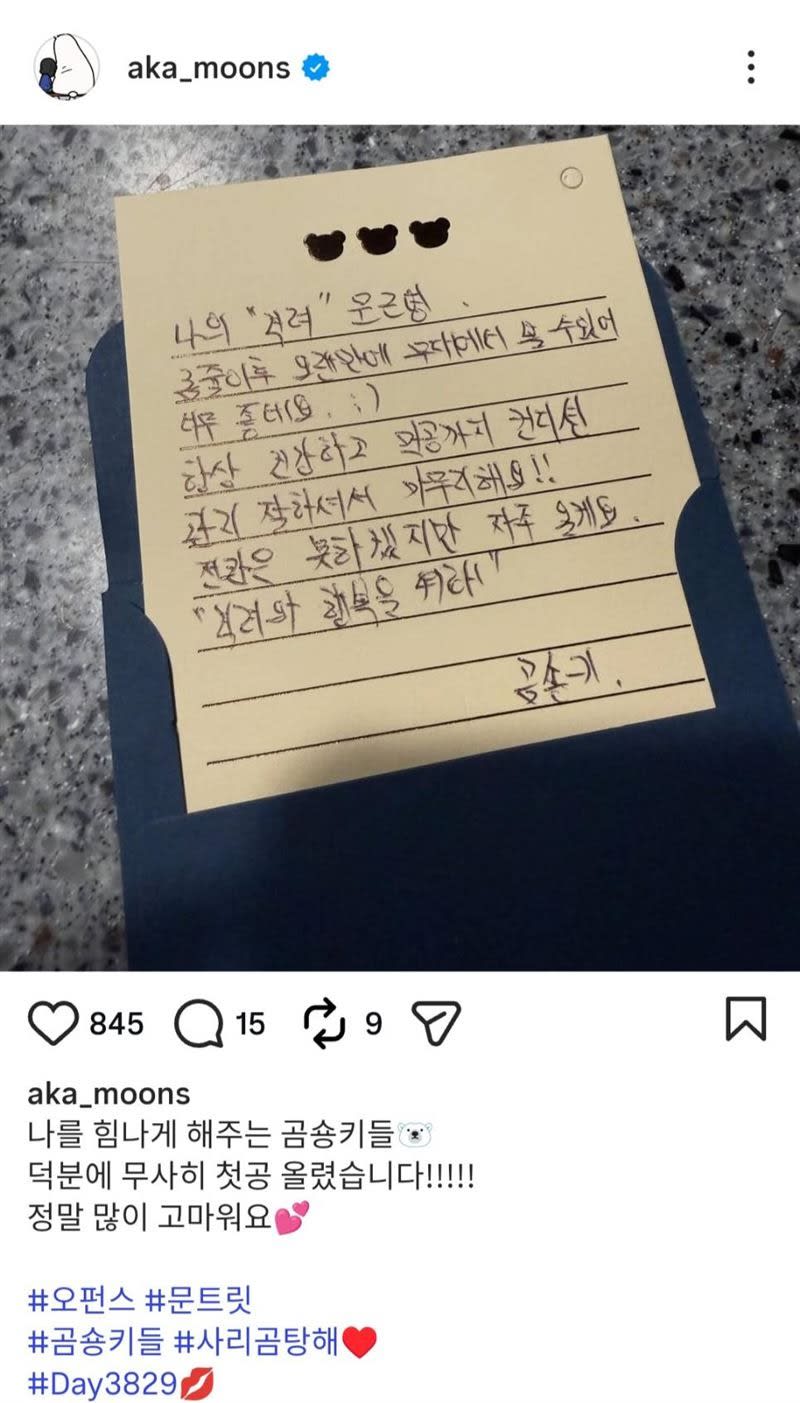 aka_moons
나의 "격려" 문근영.
곰줄이후 오랜만에 무대에서 볼 수있어
너무 좋네요. :)
항상 건강하고 막공까지 컨디션
관리 잘하셔서 마무리해요!!
전관은 못하겠지만 자주 올게요.
"격려와 행복을 위하
곰숑키.
845
15
9
aka_moons
나를 힘나게 해주는 곰숑키들🐻‍❄️
덕분에 무사히 첫공 올렸습니다!!!!!
정말 많이 고마워요💕
#오펀스 #문트릿
#곰숑키들 #사리곰탕해❤️
#Day3829💋